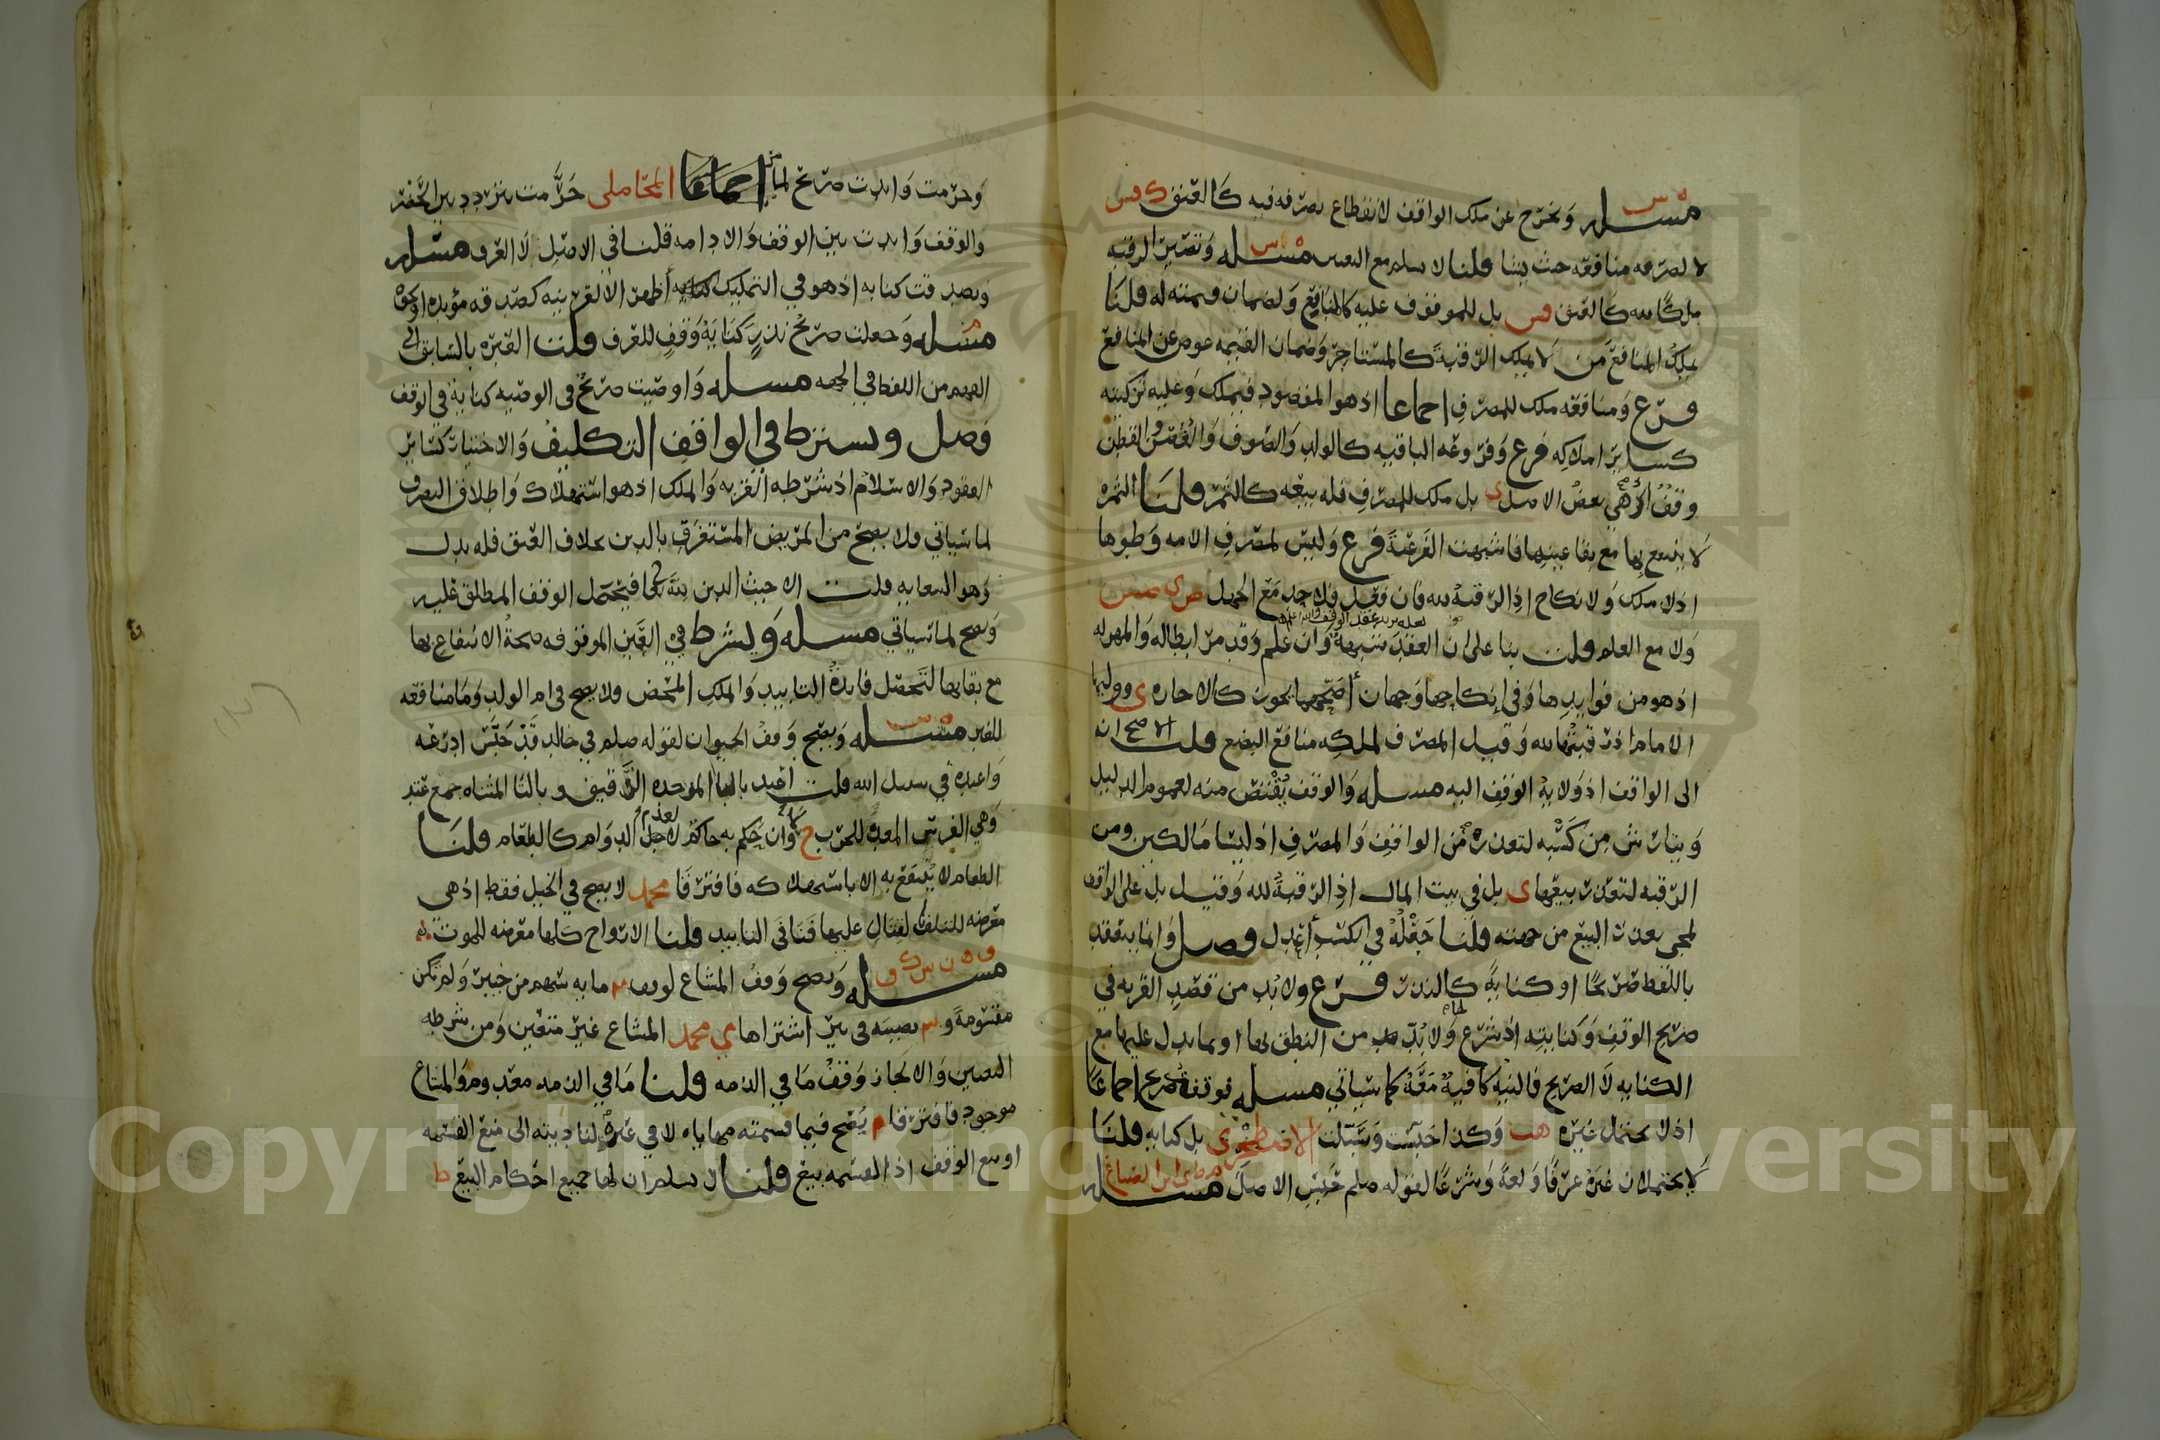 مسله ويخرج عن ملك الواقف لانقطاع تصرفه فيه كالعتق
لا لصرفه منافعه حيث يشا قلنا لا نسلم مع مسله وتصير الرقبة
ملكا لله كالعتق بل للموقوف عليه كالمنافع ولضمان قيمته له قلنا
يملك المنافع من لا يملك الرقبة كالمستاجر وضمان القيمه عوض عن المنافع
فرع ومنافعه ملك للمصرف اجماعا اذ هو المقصود فيملك وعليه تزكيته
كساير املاكه فرع وفروعه الباقيه كالولد والصوف والغصن والقطن
وقف اذ هي بعض الاصل ى بل ملك للمصرف فله بيعه كالثمر قلنا الثمره
لا ينتفع بها مع بقا عينها فاشبهت الفرع فرع وليس لمصرف الامه وطوها
اذ لا ملك ولا نكاح اذ الرقبة لله فان فعل فلا حد مع الجهل
ولا مع العلم قلت بنا على ان العقد شبهة وان علم وقد مر ابطاله والمهر له
اذ هو من فوايدها وفي انكاحها وجهان أصحهما يجوز كالاجاره ى ووليها
الامام اذ رقبتها لله وقيل المصرف لملكه منافع البضع قلت الاصح انه
الى الواقف اذ ولاية الوقف اليه مسله والوقف يقتص منه لعموم الدليل
ويتارش من كسبه لتعذره من الواقف والمصرف اذ ليسا مالكين ومن
الرقبه لتعذر بيعها ى بل في بيت المال اذ الرقبة لله وقيل بل على الواقف
لمجى تعذر البيع من جهته قلنا جعله في الكسب أعدل فصل وانما ينعقد
باللفظ صريحا او كناية كالنذر فرع ولا بد من قصد القربه في
صريح الوقف وكنايته اذ شرع لها ولا بد من النطق بها او بما يدل عليها مع
الكنايه لا الصريح فالنيه كافية معه كما سياتي مسله فوقفت صريح اجماعا
اذ لا يحتمل غيره هب وكذا احبست وسبلت الاصطخري بل كنايه قلنا
لا يحتملان غيره عرفا ولغة وشرعا لقوله صلعم حبس الاصل مسله
وحرمت وابدت صريح اجماعا المحاملي حرمت يتردد بين
والوقف وابدت بين الوقف والادامه قلنا في الاصل لا العرف مسله
وتصدقت كنايه اذ هو في التمليك أظهر الا لقرينه كصدقه مؤبده او
مسله وجعلت صريح نذر كناية وقف للعرف قلت العبره بالسابق الى
الفهم من اللفظ في الجهه مسله واوصيت صريح في الوصيه كناية في الوقف
فصل ويشترط في الواقف التكليف والاختيار كساير
العقود والاسلام اذ شرطه القربه والملك اذ هو استهلاك واطلاق التصرف
لما سياتي فلا يصح من المريض المستغرق بالدين بخلاف العتق فله بدل
وهو السعايه قلت الا حيث الدين لله فيحتمل الوقف المطلق عليه
ويصح لما سياتي مسله ويشرط في العين الموقوفه صحة الانتفاع بها
مع بقايها لتحصل فايدة التابيد والملك المحض فلا يصح في ام الولد وما منافعه
للغير مسله ويصح وقف الحيوان لقوله صلعم في خالد قد حبس ادرعه
واعبده في سبيل الله قلت اعبد بالبا الموحده الرقيق وبالتا المثناه جمع عتد
وهي الفرس المعد للحرب ح وان حكم به حاكم لاجل الدوام كالطعام قلنا
الطعام لا ينتفع به الا باستهلاكه فافترقا محمد لا يصح في الخيل فقط اذ هى
معرضه للتلف لقتال عليها فنافى التابيد قلنا الارواح كلها معرضه للموت
مسله ويصح وقف المشاع لوقف ما يه سهم من خيبر ولم تكن
مقسومة و نصيبه في بير اشتراها ي محمد المشاع غير متعين ومن شرطه
التعيين والا لجاز وقف ما في الذمه قلنا ما في الذمه معدوم والمشاع
موجود فافترقا م يصح فيما قسمته مهاياه لا في غيره لتاديته الى منع القسمه
او بيع الوقف اذ القسمه بيع قلنا لا نسلم ان لها جميع احكام البيع ط
Copyright © King Saud University